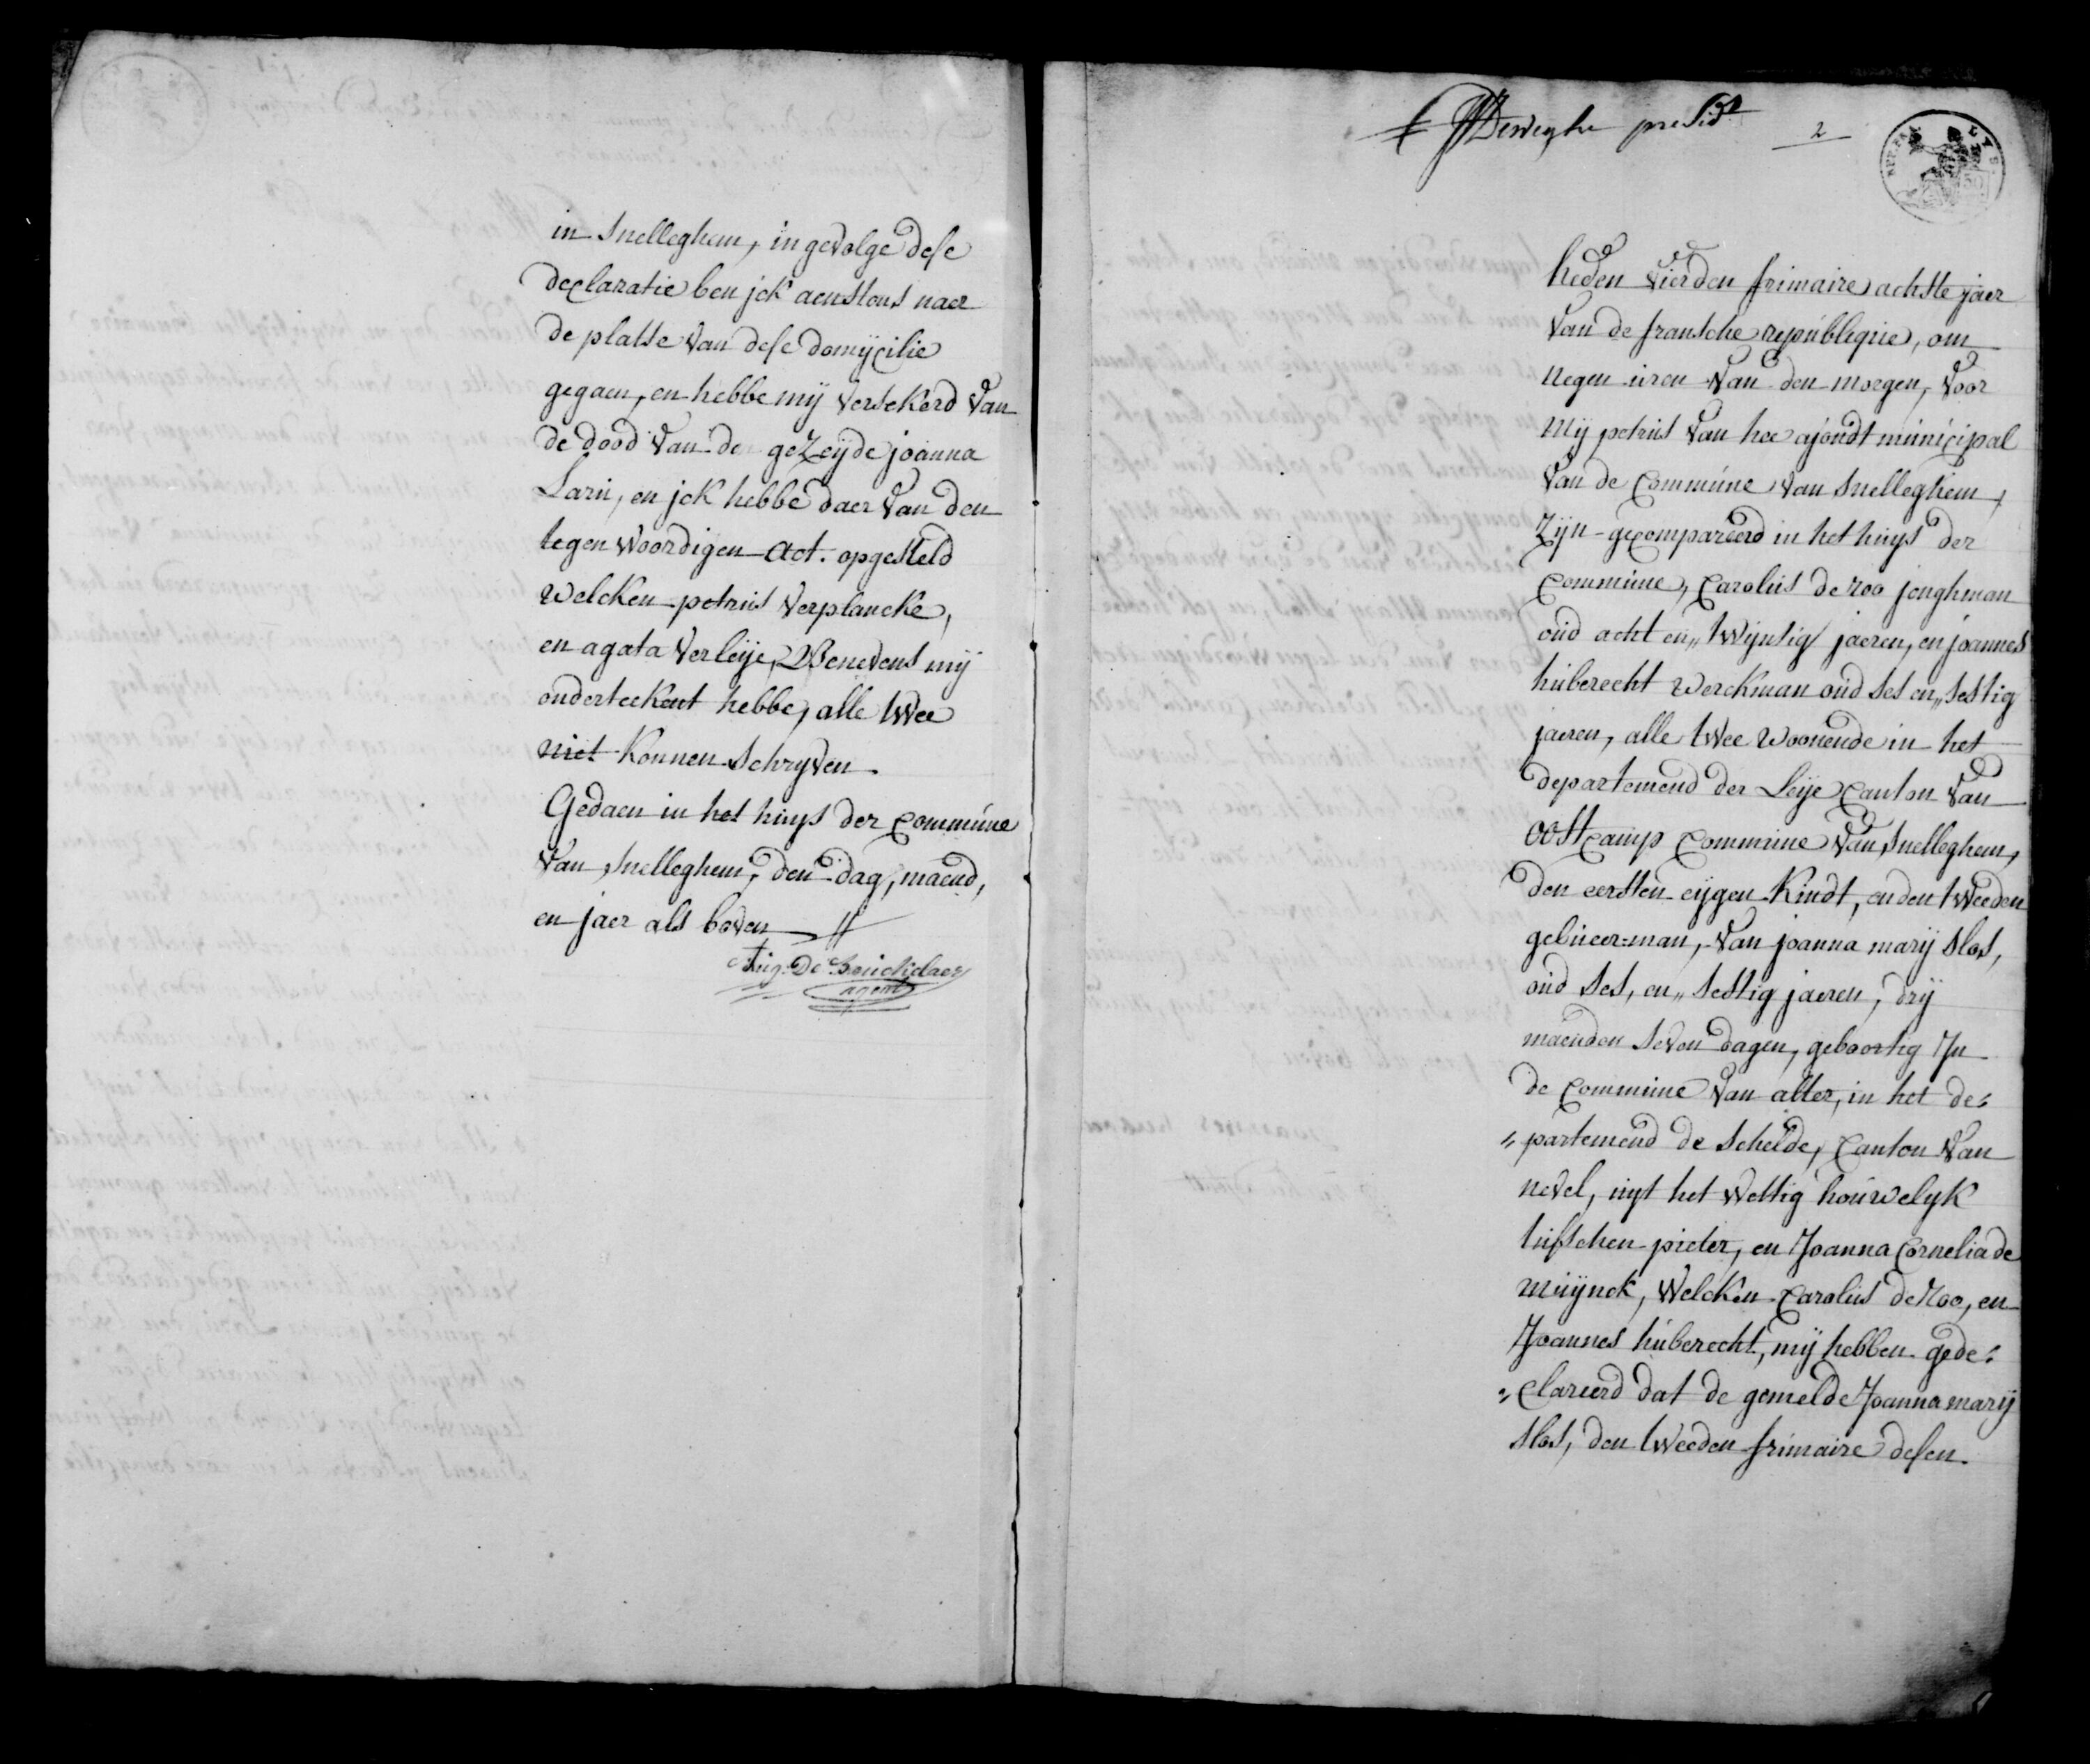 in Snelleghem, in gevolge dese
declaratie ben jck aenstons naer
de platse van dese domycilie
gegaen, en hebbe mij versekerd van
de dood van de gezeijde joanna
Laru, en jck hebbe daer van den
tegenwoordigen act. opgesteld
welcken petrus verplancke,
en agata verleije, Benevens mij
onderteekent hebbe, alle twee
niet konnen schryven
Gedaen in het huys der commúne
van snelleghem, den dag, maend,
en jaer als boven
Aug. De
agent
presidt
2
heden vierden frimaire achtste jaer
van de fransche repúbleque, om
negen uren van den morgen, voor
mij petrus van hee ajoudt municipal
van de commúne van snelleghem,
zijn gecompareerd in het huys der
commúne, carolus de roo jonghman
oud acht en„ twijntig jaeren, en joannes
huberecht werckman oud ses en„ sestig
jaeren, alle twee woonende in het
departemend der Leije canton van
oostcamp commúne van snelleghem,
den eersten eijgen kindt, en den tweeden
gebueer=man, van joanna marij slos,
oud ses, en„ sestig jaeren, drij
maenden seven dagen, geboortig Jn
de commúne van alter, in het de=
„partemend de schelde, canton van
nevel, uyt het wettig houwelyk
tusschen pieter, en Joanna Cornelia de
muijnck, welcken carolus de roo, en
Joannes huberecht, mij hebben gede=
=clareerd dat de gemelde Joanna marij
slos, den tweeden frimaire desen